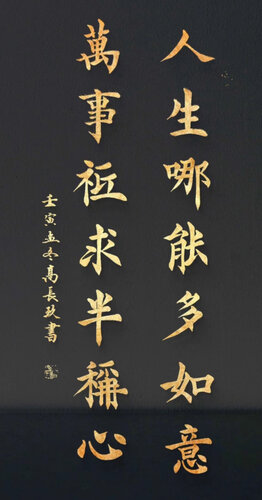 人生哪能多如意
萬事祗求半稱心
壬寅孟冬高長玖書